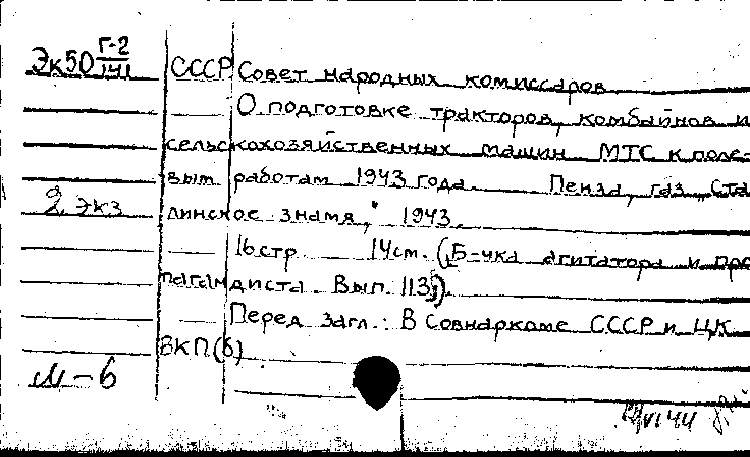 Эк50 Г-2/141 СССР Совет народных комиссаров
О подготовке тракторов, комбайнов и
сельскохозяйственных машин МТС к поле-
вым работам 1943 года. Пенза, газ „Ста
2 экз линское знамя," 1943.
16 стр 14 см. („Б-чка агитатора и про
пагандиста. Вып. 113").
Перед загл.: В Совнаркоме СССР и ЦК
ВКП(б)
М-6
VI 44